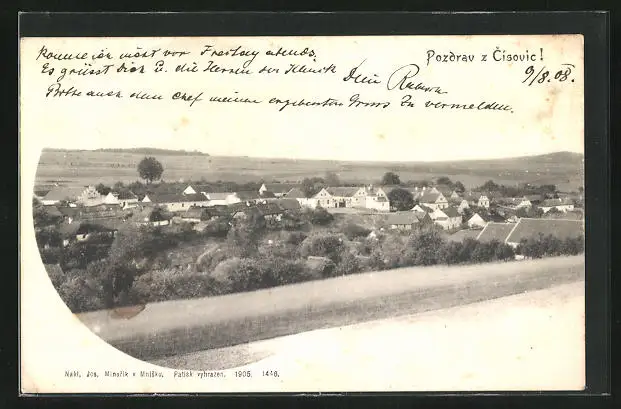 komme ich nicht vor Freitag abends.
Es grüsst Dich u. die Herren der Klinik Dein
Bitte auch dem Chef meine ergebensten Gruss zu vermelden.
Pozdrav z Čisovic!
9/8.08.
Nakl. Jos. Minařík v Mníšku. Patisk vyhražen. 1905. 1448.